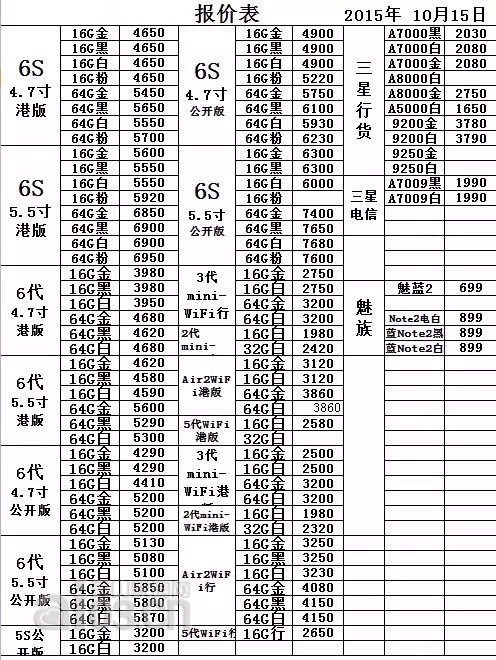 报价表 2015年 10月15日
16G金 4650 16G金 4900 A7000黑 2030
16G黑 4650 16G黑 4900 三 A7000白 2080
6S 16G白 4650 6S 16G白 4900 A7000金 2080
16G粉 4650 16G粉 5220 星 A8000白
4.7寸 64G金 5450 4.7寸 64G金 4900 A8000金 2750
港版 64G黑 5650 公开版 64G黑 6100 行 A5000白 1650
64G白 5550 64G白 5930 货 9200金 3780
64G粉 5700 64G粉 6230 9200白 3790
16G金 5600 16G金 6300 9250金
16G黑 5550 16G黑 6300 9250白
6S 16G白 5550 6S 16G白 6000 三星 A7009黑 1990
16G粉 5920 16G粉 电信 A7009白 1990
5.5寸 64G金 6850 5.5寸 64G金 7400
港版 64G黑 6900 公开版 64G黑 7650
64G白 6900 64G白 7680
64G粉 6950 64G粉 7600
16G金 3980 3代 16G金 2750
6代 16G黑 3980 mini- 16G白 2750 魅 魅蓝2 699
4.7寸 16G白 3950 WiFi行 64G金 3200
港版 64G金 4680 64G白 3200 族 Note2电白 899
64G黑 4620 2代 16G白 1980 蓝Note2黑 899
64G白 4680 mini- 32G白 2420 蓝Note2白 899
16G金 4620 16G金 3120
6代 16G黑 4580 Air2WiF 16G白 3120
5.5寸 16G白 4590 i港版 64G金 3860
港版 64G金 5600 64G白 3860
64G黑 5290 5代WiFi 16G白 2580
64G白 5300 港版 32G白
16G金 4290 3代 16G金 2500
6代 16G黑 4290 mini- 16G白 2500
4.7寸 16G白 4410 WiFi港 64G金 3200
公开版 64G金 5200 64G白 3200
64G黑 5200 2代mini- 16G白 1980
64G白 5200 WiFi港版 32G白 2320
16G金 5130 16G金 3250
6代 16G黑 5080 16G黑 3250
5.5寸 16G白 5100 Air2WiF 16G白 3230
公开版 64G金 5850 i行 64G金 4080
64G黑 5800 64G黑 4150
64G白 5870 64G白 4150
5S公 16G金 3200 5代WiFi行 16G行 2650
开版 16G白 3200